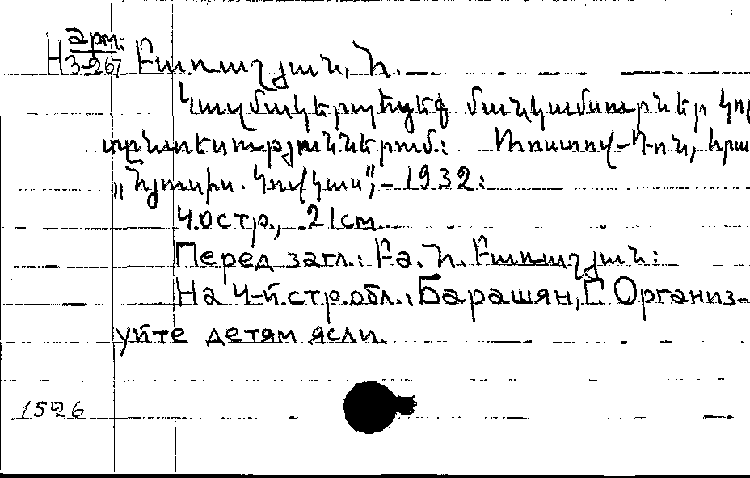 H арм. 3-267
Բառաշյան, Հ.
Կազմակերպեցեք մանկամսուրներ կոլ
տնտեսություններում: Ռոստով-Դոն, հրա
„Հյուսիս. Կովկաս", - 1932:
40стр., 21см
Перед загл.: Բժ. Հ. Բառաշյան:
На 4-й.стр.обл.: Барашян, Г. Организ-
уйте детям ясли.
1526